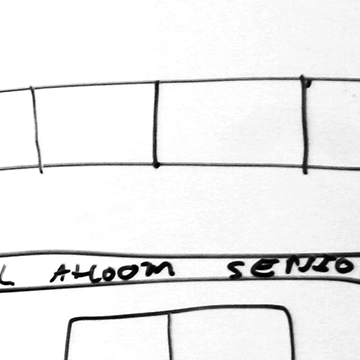 L AHOOM SENIO